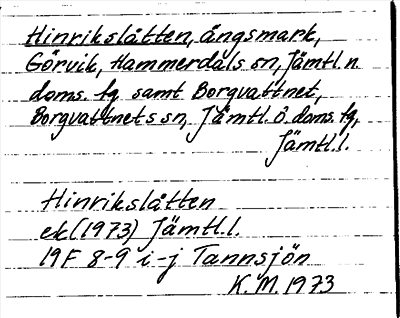 Hinrikslåtten, ängsmark,
Görvik, Hammerdals sn, Jämtl. n.
doms. fg samt Borgvattnet,
Borgvattnets sn, Jämtl. ö. doms. fg,
Jämtl. l.
Hinrikslåtten
ek (1973) Jämtl. l.
19F 8-9 i-j Tannsjön
K. M. 1973